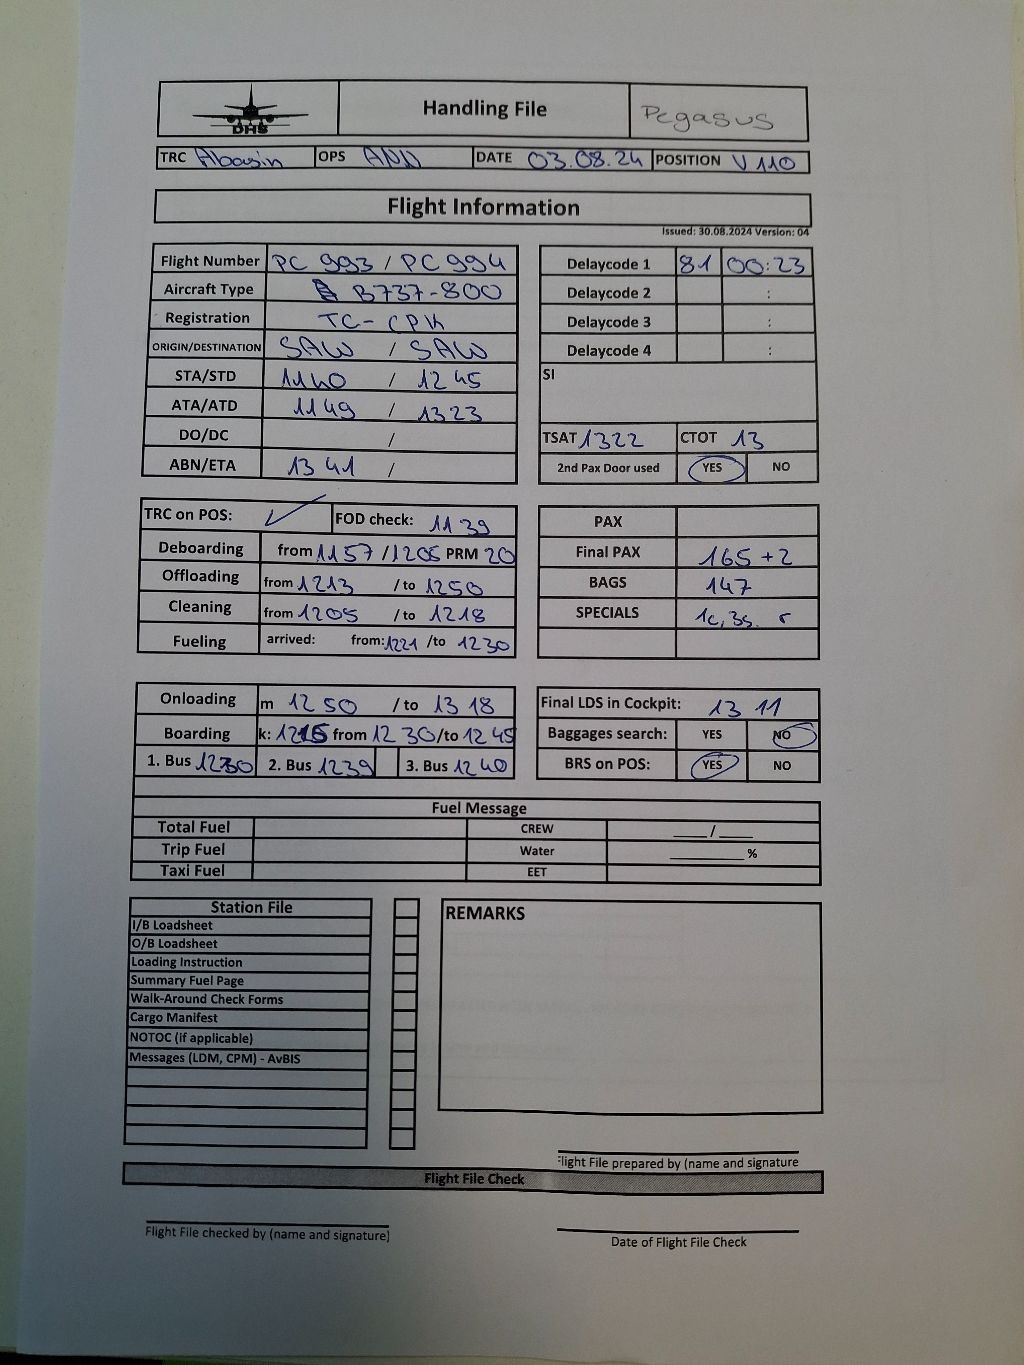 DHS
Handling File
Pegasus
TRC Abasin OPS AND DATE 03.08.24 POSITION V 110
Flight Information
Issued: 30.08.2024 Version: 04
Flight Number PC 993 / PC 994
Aircraft Type B737-800
Registration TC-CPK
ORIGIN/DESTINATION SAW / SAW
STA/STD 1140 / 1245
ATA/ATD 1149 / 1323
DO/DC /
ABN/ETA 1341 /
Delaycode 1 81 00:23
Delaycode 2 :
Delaycode 3 :
Delaycode 4 :
SI
TSAT 1322 CTOT 13
2nd Pax Door used YES NO
TRC on POS: ✓ FOD check: 1139
Deboarding from 1157 / 1205 PRM 20
Offloading from 1213 / to 1250
Cleaning from 1205 / to 1218
Fueling arrived: from: 1221 /to 1230
PAX
Final PAX 165 + 2
BAGS 147
SPECIALS 1c, 3s.
Onloading m 1250 / to 1318
Boarding k: 1215 from 1230/to 1245
1. Bus 1230 2. Bus 1239 3. Bus 1240
Final LDS in Cockpit: 1311
Baggages search: YES NO
BRS on POS: YES NO
Fuel Message
Total Fuel CREW ____/____
Trip Fuel Water ________%
Taxi Fuel EET
Station File
I/B Loadsheet
O/B Loadsheet
Loading Instruction
Summary Fuel Page
Walk-Around Check Forms
Cargo Manifest
NOTOC (if applicable)
Messages (LDM, CPM) - AvBIS
REMARKS
Flight File prepared by (name and signature
Flight File Check
Flight File checked by (name and signature)
Date of Flight File Check